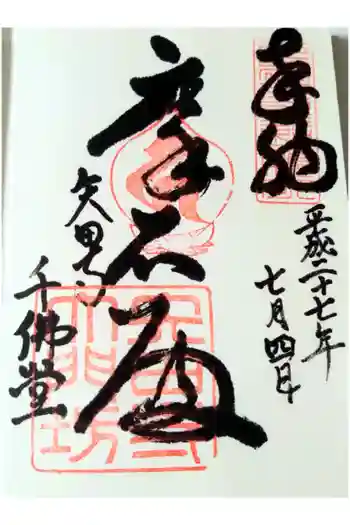 奉納
平成二十七年
七月四日
摩尼殿
矢田寺
千佛堂